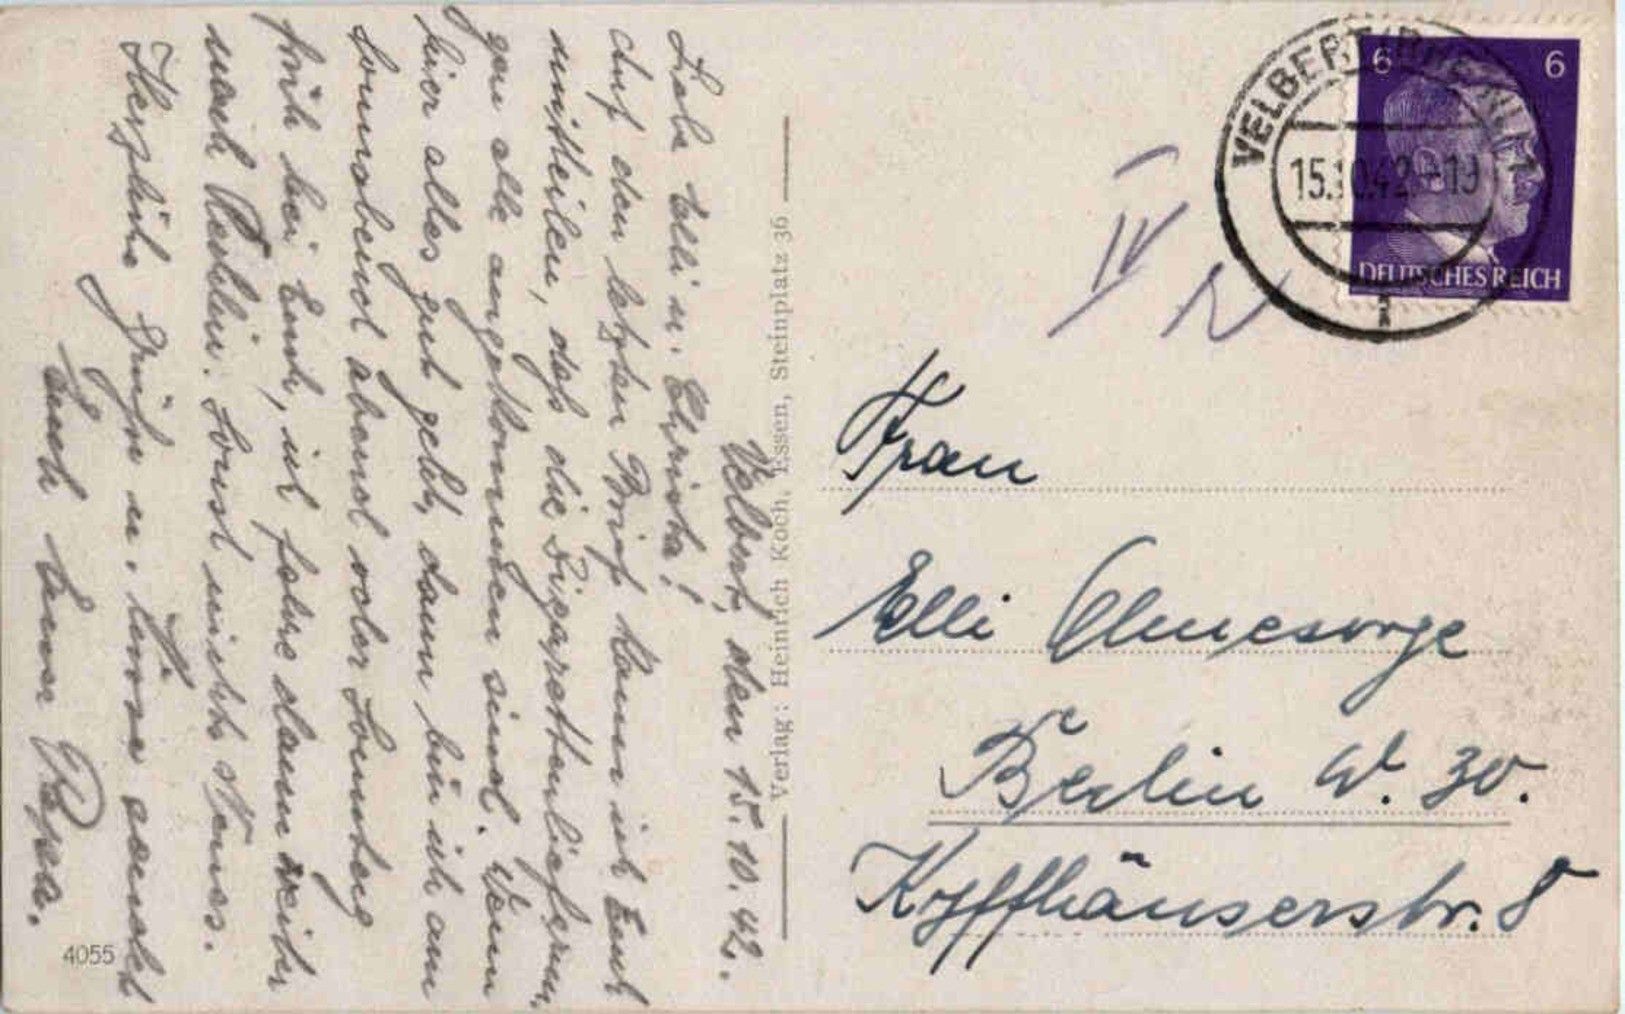 Velbert, den 15.10.42.
Liebe Elli u. Christa!
Auf den letzten Brief kann ich Euch
mitteilen, daß die Zigarettenlieferun-
gen alle angekommen sind. Wenn
hier alles gut geht, dann bin ich am
Sonnabend abend oder Sonntag
früh bei Euch, ich fahre dann weiter
nach Berlin. Sonst nichts Neues.
Herzliche Grüße u. Küsse sendet
Euch Euer Papa.
4055
Verlag: Heinrich Koch, Essen, Steinplatz 36
VELBERT (RHEINL)
15.10.42.-19
1
6 6
DEUTSCHES REICH
IV
Frau
Elli Ohnesorge
Berlin W. 30.
Kyffhäuserstr. 8